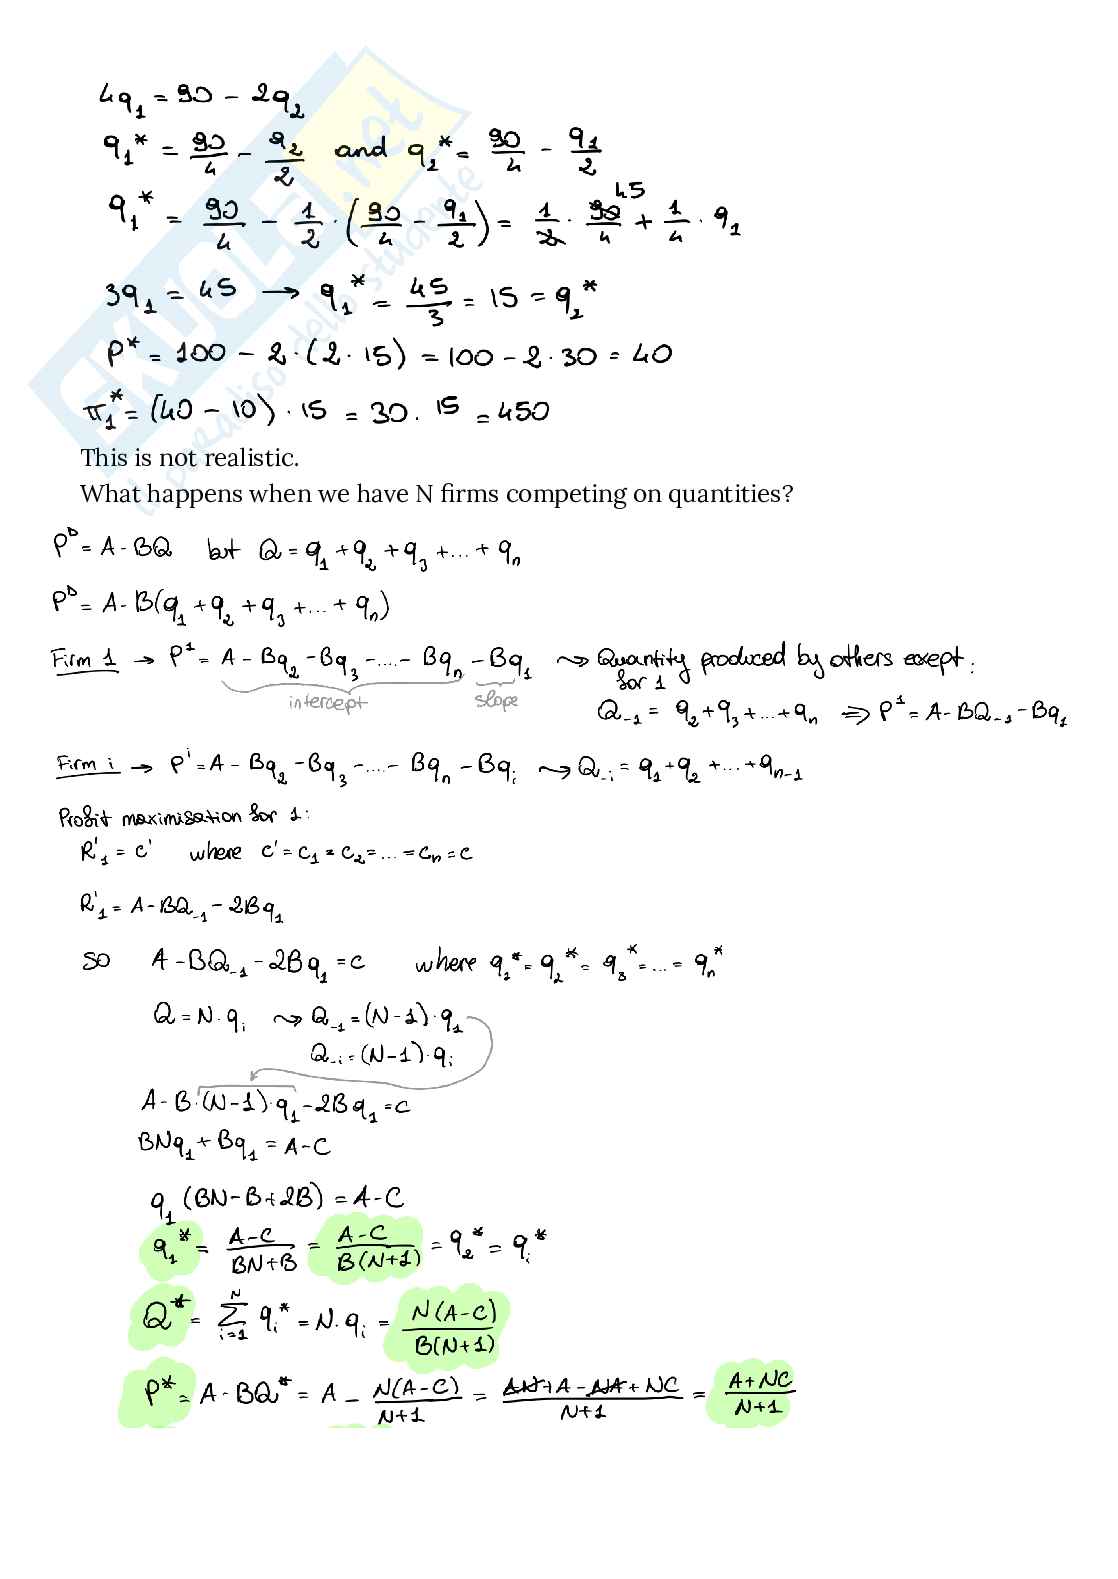 4q₁ = 90 - 2q₂
q₁* = 90/4 - q₂/2 and q₂* = 90/4 - q₁/2
q₁* = 90/4 - 1/2 · (90/4 - q₁/2) = 1/2 · 90/4 + 1/4 · q₁
45
3q₁ = 45 → q₁* = 45/3 = 15 = q₂*
P* = 100 - 2 · (2 · 15) = 100 - 2 · 30 = 40
π₁* = (40 - 10) · 15 = 30 · 15 = 450
This is not realistic.
What happens when we have N firms competing on quantities?
Pᴰ = A - BQ but Q = q₁ + q₂ + q₃ + ... + qₙ
Pᴰ = A - B(q₁ + q₂ + q₃ + ... + qₙ)
Firm 1 → P¹ = A - Bq₂ - Bq₃ - ... - Bqₙ - Bq₁ ⇝ Quantity produced by others exept
for 1
intercept slope
Q₋₁ = q₂ + q₃ + ... + qₙ ⇒ P¹ = A - BQ₋₁ - Bq₁
Firm i → Pⁱ = A - Bq₂ - Bq₃ - ... - Bqₙ - Bqᵢ ⇝ Q₋ᵢ = q₁ + q₂ + ... + qₙ₋₁
Profit maximisation for 1:
R'₁ = C' where C' = C₁ = C₂ = ... = Cₙ = C
R'₁ = A - BQ₋₁ - 2Bq₁
so A - BQ₋₁ - 2Bq₁ = C where q₁* = q₂* = q₃* = ... = qₙ*
Q = N · qᵢ ⇝ Q₋₁ = (N-1) · q₁
Q₋ᵢ = (N-1) · qᵢ
A - B · (N-1) · q₁ - 2Bq₁ = C
BNq₁ + Bq₁ = A - C
q₁ (BN - B + 2B) = A - C
q₁* = A-C/BN+B = A-C/B(N+1) = q₂* = qᵢ*
Q* = Σᵢ₌₁ᴺ qᵢ* = N · qᵢ = N(A-C)/B(N+1)
P* = A - BQ* = A - N(A-C)/N+1 = AN+A-NA+NC/N+1 = A+NC/N+1
SKUOLA.net
il paradiso dello studente